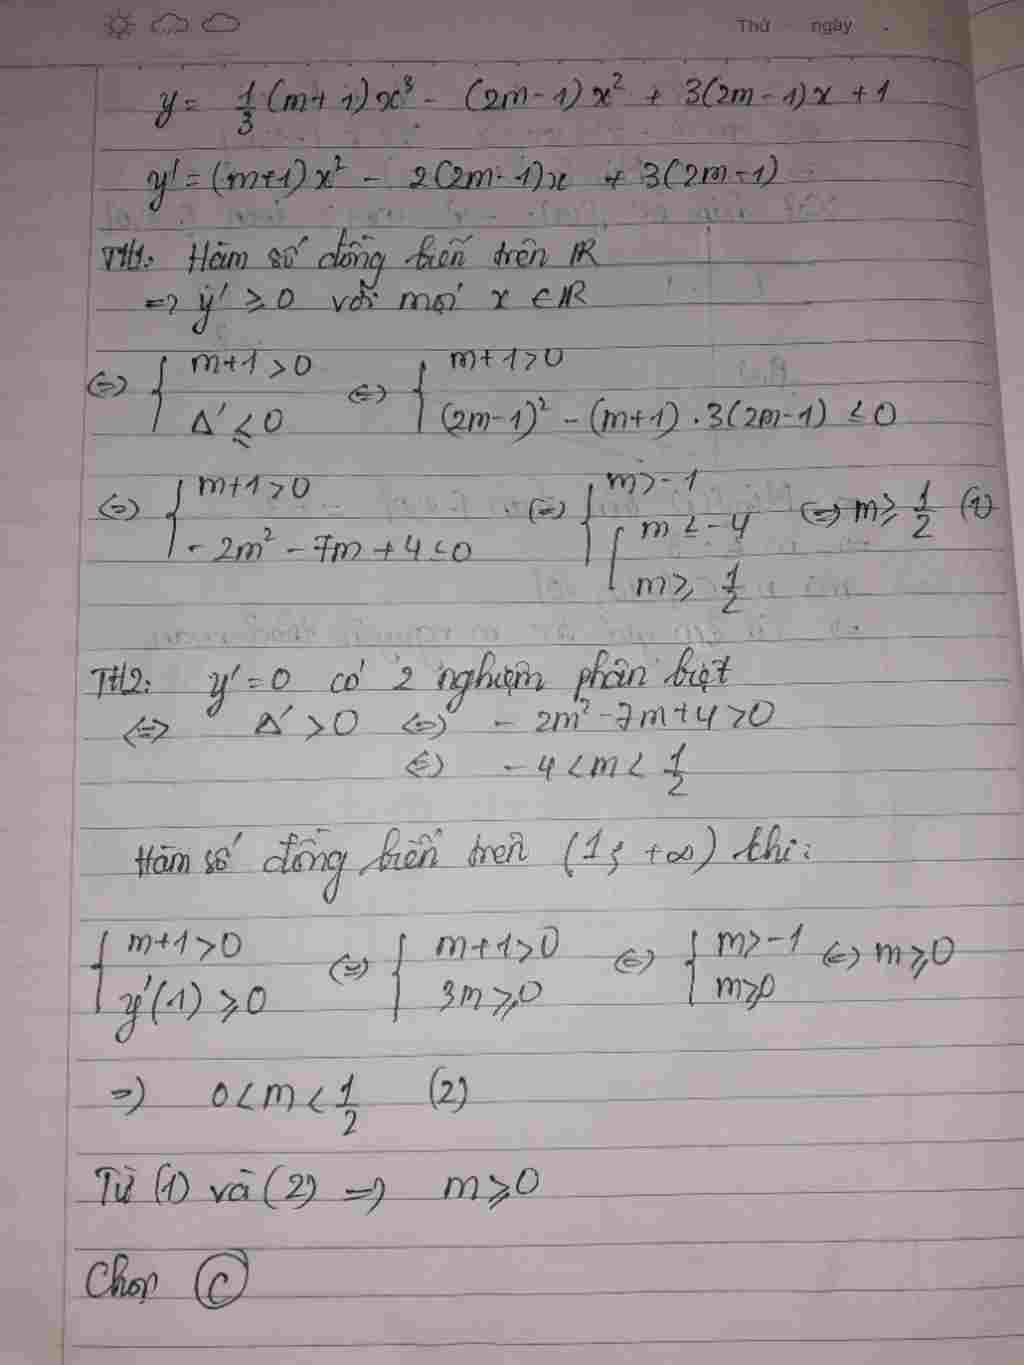 Thứ ngày .
y = 1/3 (m+1)x³ - (2m-1)x² + 3(2m-1)x + 1
y' = (m+1)x² - 2(2m-1)x + 3(2m-1)
TH1: Hàm số đồng biến trên ℝ
=> y' ≥ 0 với mọi x ∈ ℝ
<=> { m+1>0 ; Δ' ≤ 0 <=> { m+1>0 ; (2m-1)² - (m+1).3(2m-1) ≤ 0
<=> { m+1>0 ; -2m² - 7m + 4 ≤ 0 <=> { m>-1 ; [ m ≤ -4 ; m ≥ 1/2 <=> m ≥ 1/2 (1)
TH2: y' = 0 có 2 nghiệm phân biệt
<=> Δ' > 0 <=> -2m² - 7m + 4 > 0
<=> -4 < m < 1/2
Hàm số đồng biến trên (1; +∞) khi:
{ m+1>0 ; y'(1) ≥ 0 <=> { m+1>0 ; 3m ≥ 0 <=> { m>-1 ; m≥0 <=> m ≥ 0
=> 0 < m < 1/2 (2)
Từ (1) và (2) => m ≥ 0
Chọn C